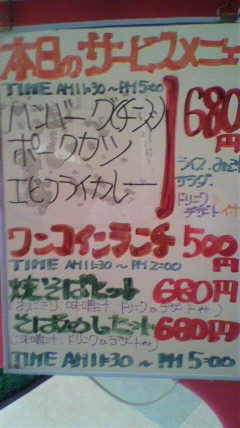 本日のサービスメニュー
TIME AM11:30~PM5:00
ハンバーグ(チーズ)
ポークカツ
エビフライカレー
680円
ライス・みそ汁
サラダ・
ドリンク
デザート付
ワンコインランチ 500円
TIME AM11:30~PM2:00
焼そばセット 680円
(おにぎり 味噌汁・ドリンク デザート付)
そばめしセット 680円
(味噌汁・ドリンク デザート付)
TIME AM11:30~PM5:00